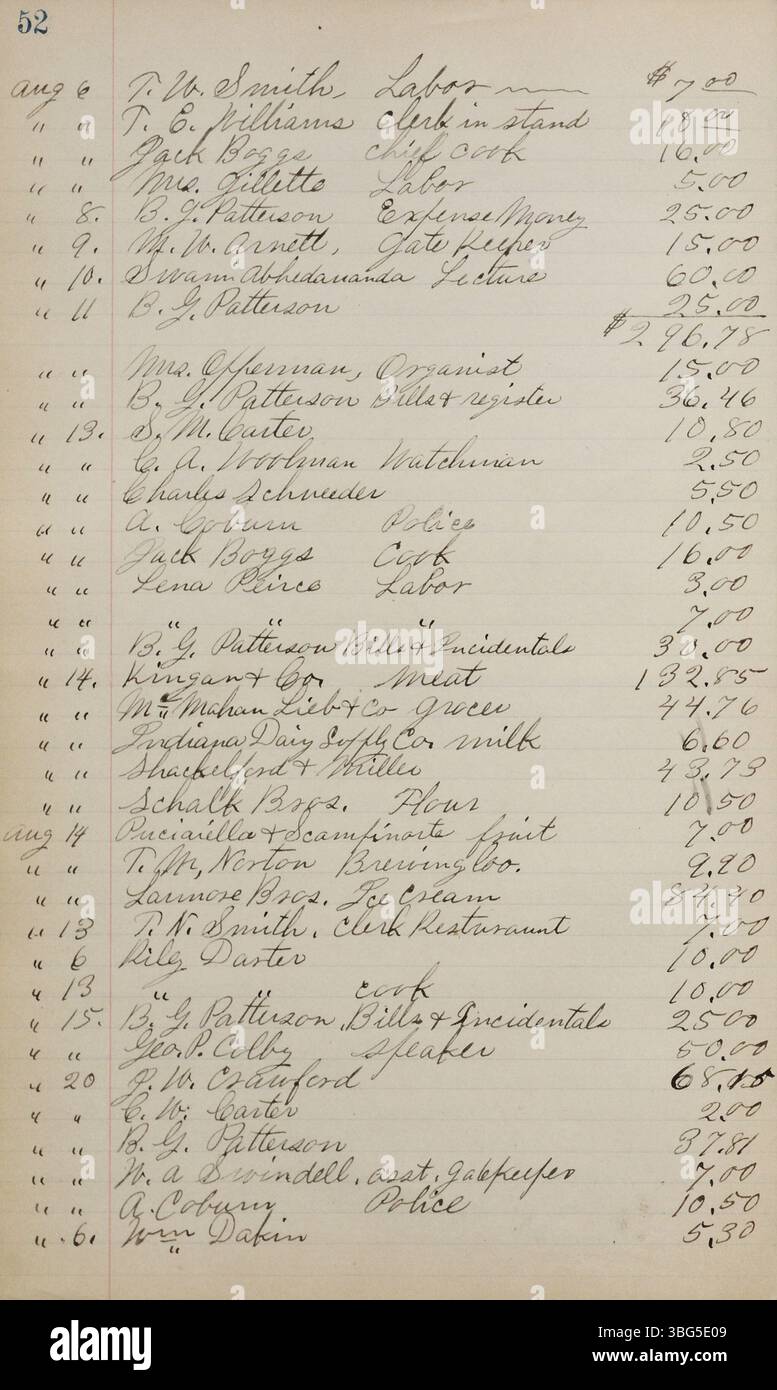 52
Aug 6 T. W. Smith, Labor $ 7 00
" " T. E. Williams Clerk in stand 18 00
" " Jack Boggs chief cook 16.00
" " Mrs. Gillette Labor 5.00
" 8. B. G. Patterson Expense Money 25.00
" 9. M. W. Arnett, Gate Keeper 15.00
" 10. Swami Abhedananda Lecture 60.00
" 11 B. G. Patterson 25.00
$ 296.78
" " Mrs. Offerman, Organist 15.00
" " B. G. Patterson Bills & register 36.46
" 13. S. M. Carter 10.80
" " C. A. Woolman Watchman 2.50
" " Charles Schneeder 5.50
" " A. Coburn Police 10.50
" " Jack Boggs Cook 16.00
" " Lena Peirce Labor 3.00
" " " " " 7.00
" " B. G. Patterson Bills & Incidentals 30.00
" 14. Kingan & Co. Meat 132.85
" " McMahan Lieb & Co Grocer 44.76
" " Indiana Dairy Supply Co. milk 6.60
" " Shackelford & Miller 43.73
" " Schalk Bros. Flour 10.50
Aug 14 fruit 7.00
" " T. M. Norton Brewing Co. 9.90
" " Larmore Bros. Ice Cream 84.40
" 13 T. N. Smith. Clerk Resturaunt 7.00
" 6 Riley Darter 10.00
" 13 " " cook 10.00
" 15. B. G. Patterson, Bills & Incidentals 25 00
" " Geo. P. Colby Speaker 50.00
" 20 J. W. Crawford 68.15
" " C. W. Carter 2.00
" " B. G. Patterson 37.81
" " W. A Swindell. asst. gatekeeper 7.00
" " A. Coburn Police 10.50
" . 6. Wm Dakin 5.30
alamy
Image ID: 3BG5E09
www.alamy.com